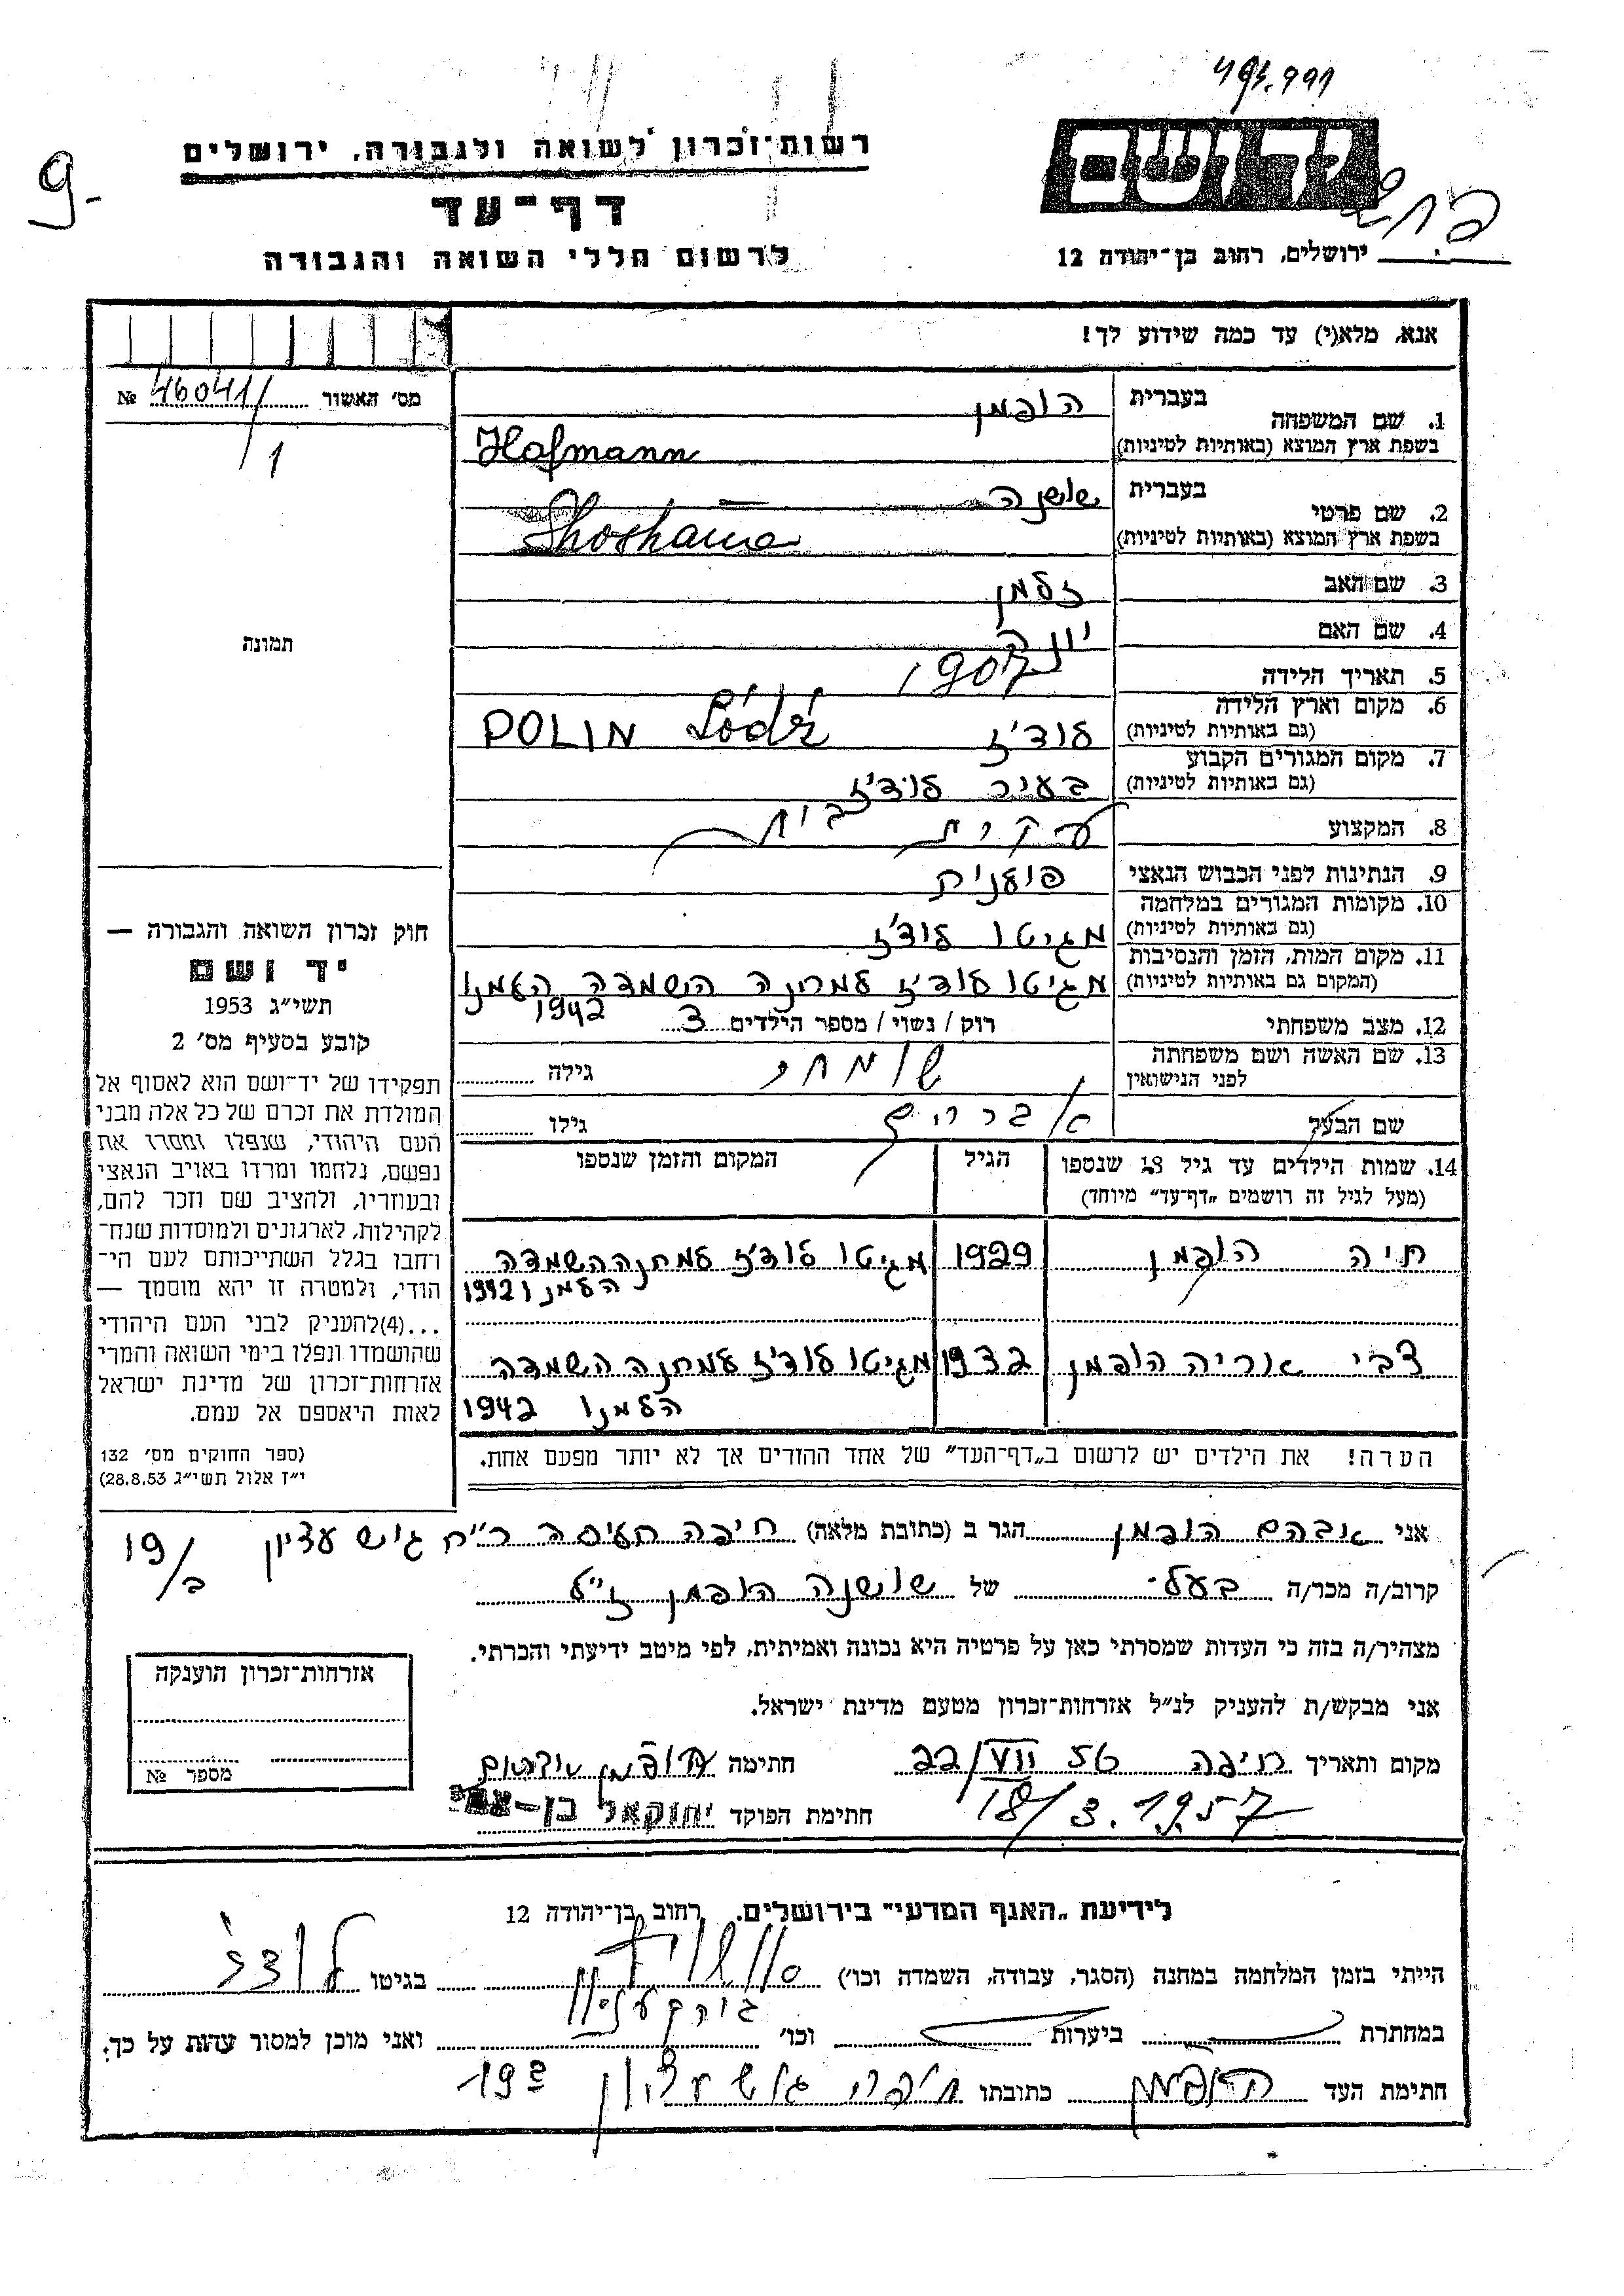 רשות־זכרון לשואה ולגבורה, ירושלים
דף־עד
לרשום חללי השואה והגבורה
9-
ידושם
ירושלים, רחוב בן־יהודה 12
אנא, מלא(י) עד כמה שידוע לך!
מס׳ האשור 46041/1 №
תמונה
1. שם המשפחה
בעברית הופמן
בשפת ארץ המוצא (באותיות לטיניות) Hofmann
2. שם פרטי
בעברית שושנה
בשפת ארץ המוצא (באותיות לטיניות) Shoshana
3. שם האב זלמן
4. שם האם יונה
5. תאריך הלידה 1907
6. מקום וארץ הלידה
(גם באותיות לטיניות) לודז' Łódź POLIN
7. מקום המגורים הקבוע
(גם באותיות לטיניות) בעיר לודז'
8. המקצוע עקרת בית
9. הנתינות לפני הכבוש הנאצי פולנית
10. מקומות המגורים במלחמה
(גם באותיות לטיניות) מגיטו לודז'
11. מקום המות, הזמן והנסיבות
(המקום גם באותיות לטיניות) מגיטו לודז' למחנה השמדה העמנו
1942
12. מצב משפחתי רוק / נשוי / מספר הילדים 3
13. שם האשה ושם משפחתה
לפני הנישואין גילה
שם הבעל אברהם גילו
14. שמות הילדים עד גיל 18 שנספו
(מעל לגיל זה רושמים „דף־עד״ מיוחד)
הגיל
המקום והזמן שנספו
חיה הופמן 1929 מגיטו לודז' למחנה השמדה
העמנו 1942
צבי אריה הופמן 1932 מגיטו לודז' למחנה השמדה
העמנו 1942
הערה! את הילדים יש לרשום ב„דף־העד״ של אחד ההורים אך לא יותר מפעם אחת.
חוק זכרון השואה והגבורה —
יד ושם
תשי״ג 1953
קובע בסעיף מס׳ 2
תפקידו של יד־ושם הוא לאסוף אל
המולדת את זכרם של כל אלה מבני
העם היהודי, שנפלו ומסרו את
נפשם, נלחמו ומרדו באויב הנאצי
ובעוזריו, ולהציב שם וזכר להם,
לקהילות, לארגונים ולמוסדות שנח־
רחבו בגלל השתייכותם לעם הי־
הודי, ולמטרה זו יהא מוסמך —
...(4)להעניק לבני העם היהודי
שהושמדו ונפלו בימי השואה והמרי
אזרחות־זכרון של מדינת ישראל
לאות היאספם אל עמם.
(ספר החוקים מס׳ 132
י״ז אלול תשי״ג 28.8.53)
אני אברהם הופמן הגר ב (כתובת מלאה) חיפה חליסה ר״ח גוש עציון 19/ב
קרוב/ה מכר/ה בעל של שושנה הופמן ז״ל
מצהיר/ה בזה כי העדות שמסרתי כאן על פרטיה היא נכונה ואמיתית, לפי מיטב ידיעתי והכרתי.
אני מבקש/ת להעניק לנ״ל אזרחות־זכרון מטעם מדינת ישראל.
מקום ותאריך חיפה 22/VII 56 חתימה הופמן אברהם
18/3.1957 חתימת הפוקד יחזקאל בן־
אזרחות־זכרון הוענקה
מספר №
לידיעת „האגף המדעי״ בירושלים. רחוב בן־יהודה 12
הייתי בזמן המלחמה במחנה (הסגר, עבודה, השמדה וכו׳) בגיטו לודז'
במחתרת ביערות וכו׳ ואני מוכן למסור עדות על כך.
חתימת העד הופמן כתובתו חיפה גוש עציון 19 ב